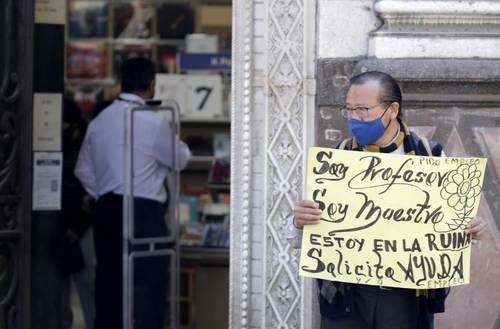 7
PIDO EMPLEO
Soy Profesor
Soy Maestro
ESTOY EN LA RUINA
Solicito AYUDA
Y/O EMPLEO